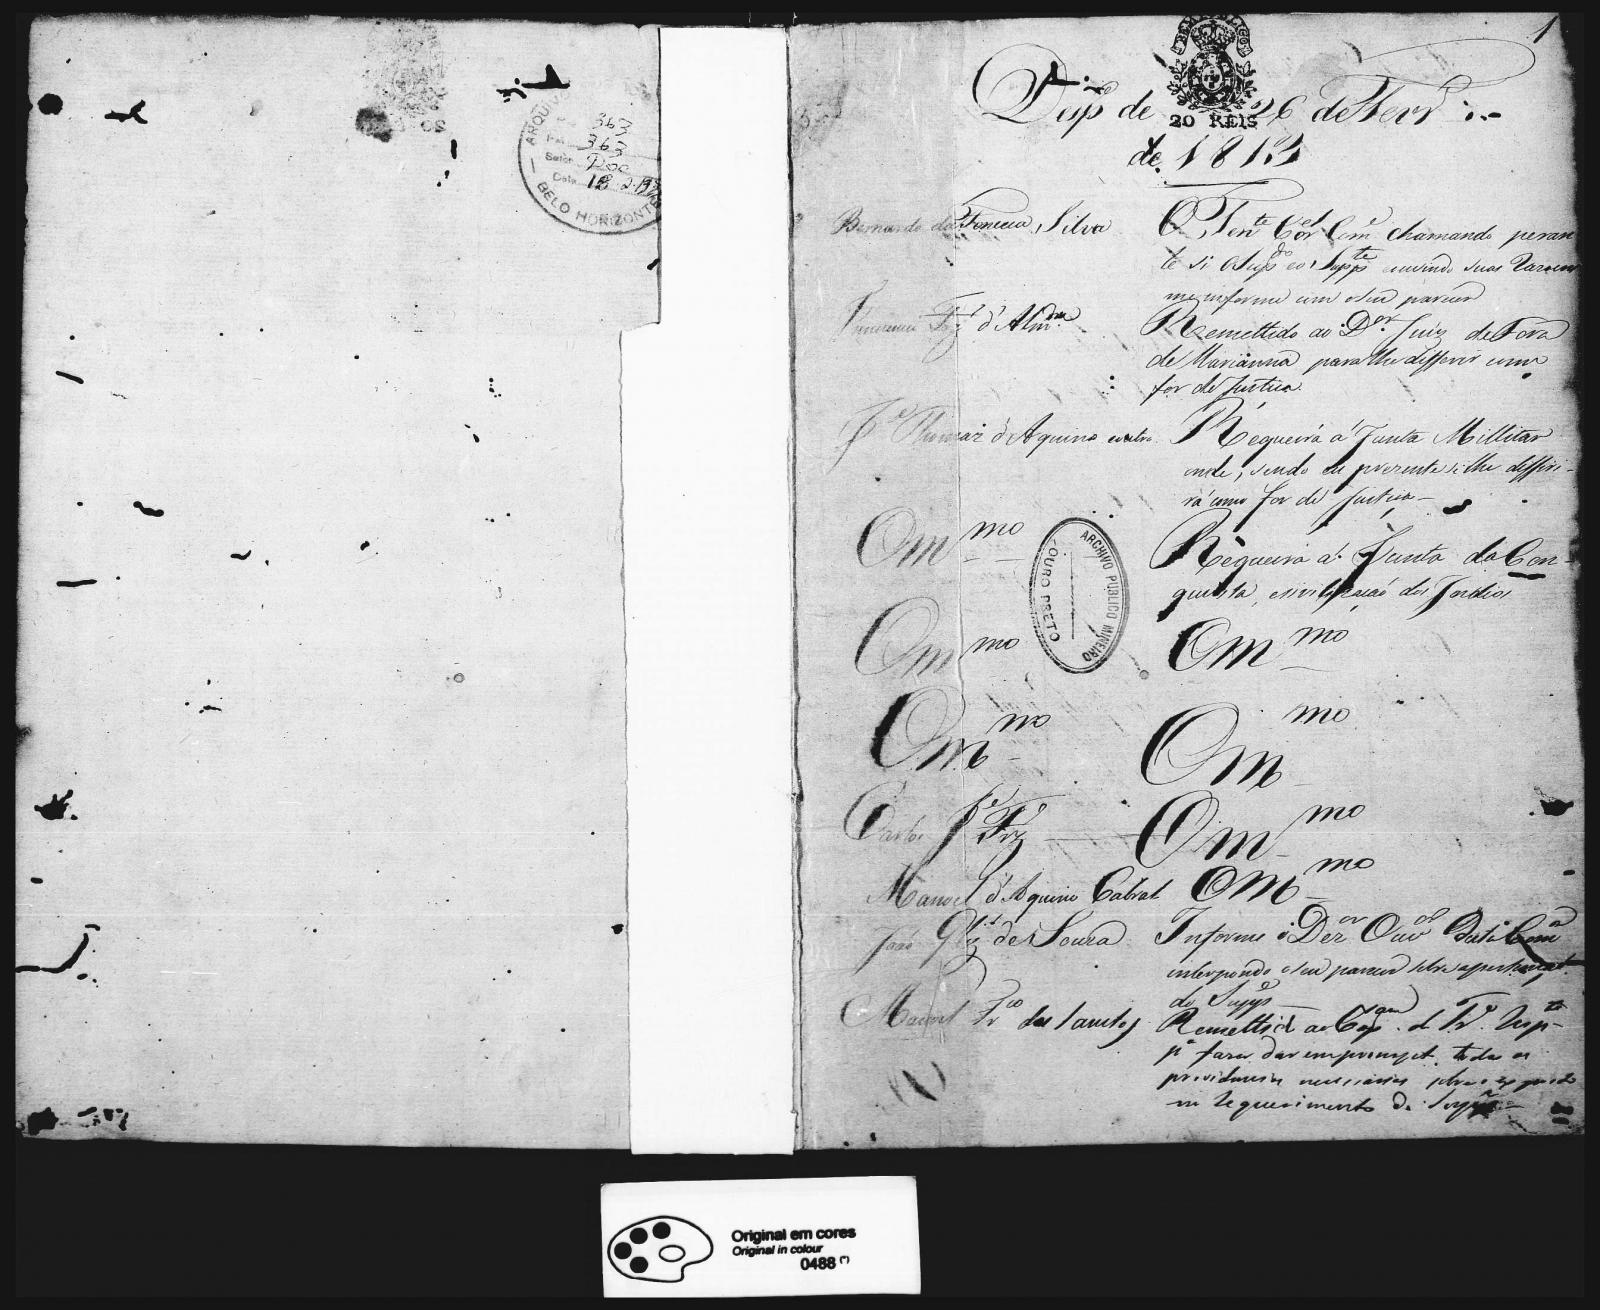 ARQUIVO
363
363
Doc
18 2
BELO HORIZONTE
1
Desp.os de 26 de Fevr.o
20 REIS
de 1813
Bernardo da Fonseca Silva
O Ten.te Cor.el Com.e chamando peran
te si o Supp.do e o Supp.te ouvindo suas razoens
me informe com o seu parecer
d'Alm.da
Remettido ao D.or Juiz de Fora
de Marianna para lhe defferir como
for de Justiça
J.e Thomaz d'Aquino e outro
Requeira á Junta Millitar
onde, sendo prezente se lhe deffiri-
rá como for de Justiça
O m.mo
Requeira á Junta da Con-
quista, e sivilização dos Indios
ARCHIVO PUBLICO MINEIRO
OURO PRETO
O m.mo
O m.mo
O m.mo
O m.mo
Carlos J.e Frz
O m.mo
Manoel d'Aquino Cabral
O m.mo
João Glz de Souza
Informe o D.or Ouv.or desta Com.ca
interpondo o seu parecer sobre
do Supp.e
Manoel Fr.co dos Santos
Remettid ao Cap.am
p.a fazer dar todas as
providencias necessarias sobre o
no requerimento do Supp.e
Original em cores
Original in colour
0488 (*)